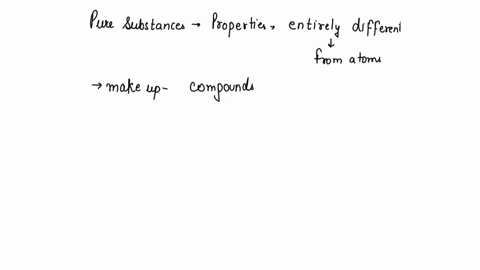 Pure Substances → Properties, entirely different
↓
from atoms
→ make up - compounds